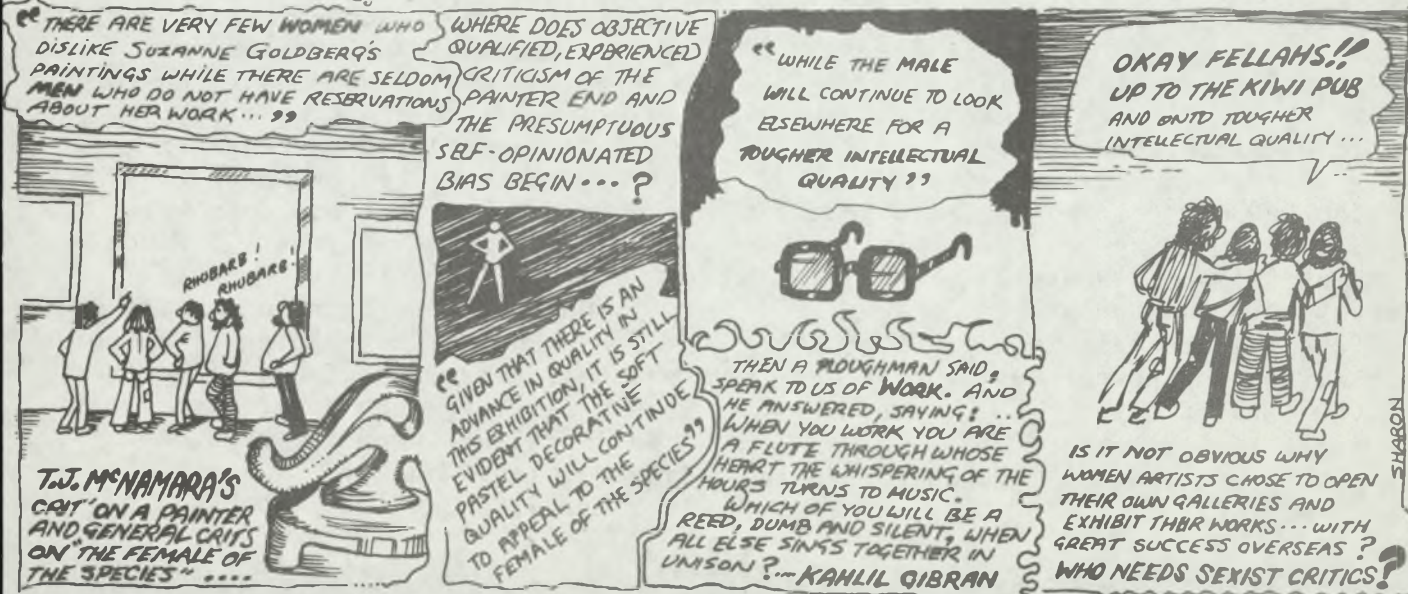 “THERE ARE VERY FEW WOMEN WHO
DISLIKE SUZANNE GOLDBERG'S
PAINTINGS WHILE THERE ARE SELDOM
MEN WHO DO NOT HAVE RESERVATIONS
ABOUT HER WORK... ”
RHUBARB!
RHUBARB!
T.J. McNAMARA'S
CRIT" ON A PAINTER
AND GENERAL CRITS
ON "THE FEMALE OF
THE SPECIES" ....
WHERE DOES OBJECTIVE
QUALIFIED, EXPERIENCED
CRITICISM OF THE
PAINTER END AND
THE PRESUMPTUOUS
SELF-OPINIONATED
BIAS BEGIN...?
“GIVEN THAT THERE IS AN
ADVANCE IN QUALITY IN
THIS EXHIBITION, IT IS STILL
EVIDENT THAT THE SOFT
PASTEL DECORATIVE
QUALITY WILL CONTINUE
TO APPEAL TO THE
FEMALE OF THE SPECIES”
“WHILE THE MALE
WILL CONTINUE TO LOOK
ELSEWHERE FOR A
TOUGHER INTELLECTUAL
QUALITY ”
THEN A PLOUGHMAN SAID,
SPEAK TO US OF WORK. AND
HE ANSWERED, SAYING: ..
WHEN YOU WORK YOU ARE
A FLUTE THROUGH WHOSE
HEART THE WHISPERING OF THE
HOURS TURNS TO MUSIC.
WHICH OF YOU WILL BE A
REED, DUMB AND SILENT, WHEN
ALL ELSE SINGS TOGETHER IN
UNISON?... KAHLIL GIBRAN
OKAY FELLAHS!!
UP TO THE KIWI PUB
AND ONTO TOUGHER
INTELLECTUAL QUALITY...
IS IT NOT OBVIOUS WHY
WOMEN ARTISTS CHOSE TO OPEN
THEIR OWN GALLERIES AND
EXHIBIT THEIR WORKS... WITH
GREAT SUCCESS OVERSEAS?
WHO NEEDS SEXIST CRITICS?
SHARON